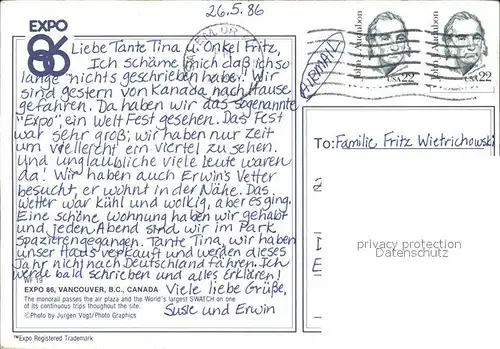 26.5.86
EXPO
86
Liebe Tante Tina u. Onkel Fritz,
Ich schäme mich daß ich so
lange nichts geschrieben habe! Wir
sind gestern von Kanada nach Hause
gefahren. Da haben wir das sogenannte
"Expo", ein Welt Fest gesehen. Das Fest
war sehr groß; wir haben nur Zeit
um vielleicht ein viertel zu sehen.
Und unglaubliche viele leute waren
da! Wir haben auch Erwin's Vetter
besucht, er wohnt in der Nähe. Das
Wetter war kühl und wolkig, aber es ging.
Eine schöne Wohnung haben wir gehabt
und jeden Abend sind wir im Park
spazierengegangen. Tante Tina, wir haben
unser Haus verkauft und werden dieses
Jahr nicht nach Deutschland fahren. Ich
werde bald schrieben und alles erklären!
Viele liebe Grüße,
Susie und Erwin
WF 19
EXPO 86, VANCOUVER, B.C., CANADA
The monorail passes the air plaza and the World's largest SWATCH on one
of its continuous trips thoughout the site.
©Photo by Jurgen Vogt/Photo Graphics
™Expo Registered Trademark
AIRMAIL
John J. Audubon
USA 22
John J. Audubon
USA 22
To: Familie Fritz Wietrichowski
privacy protection
Datenschutz